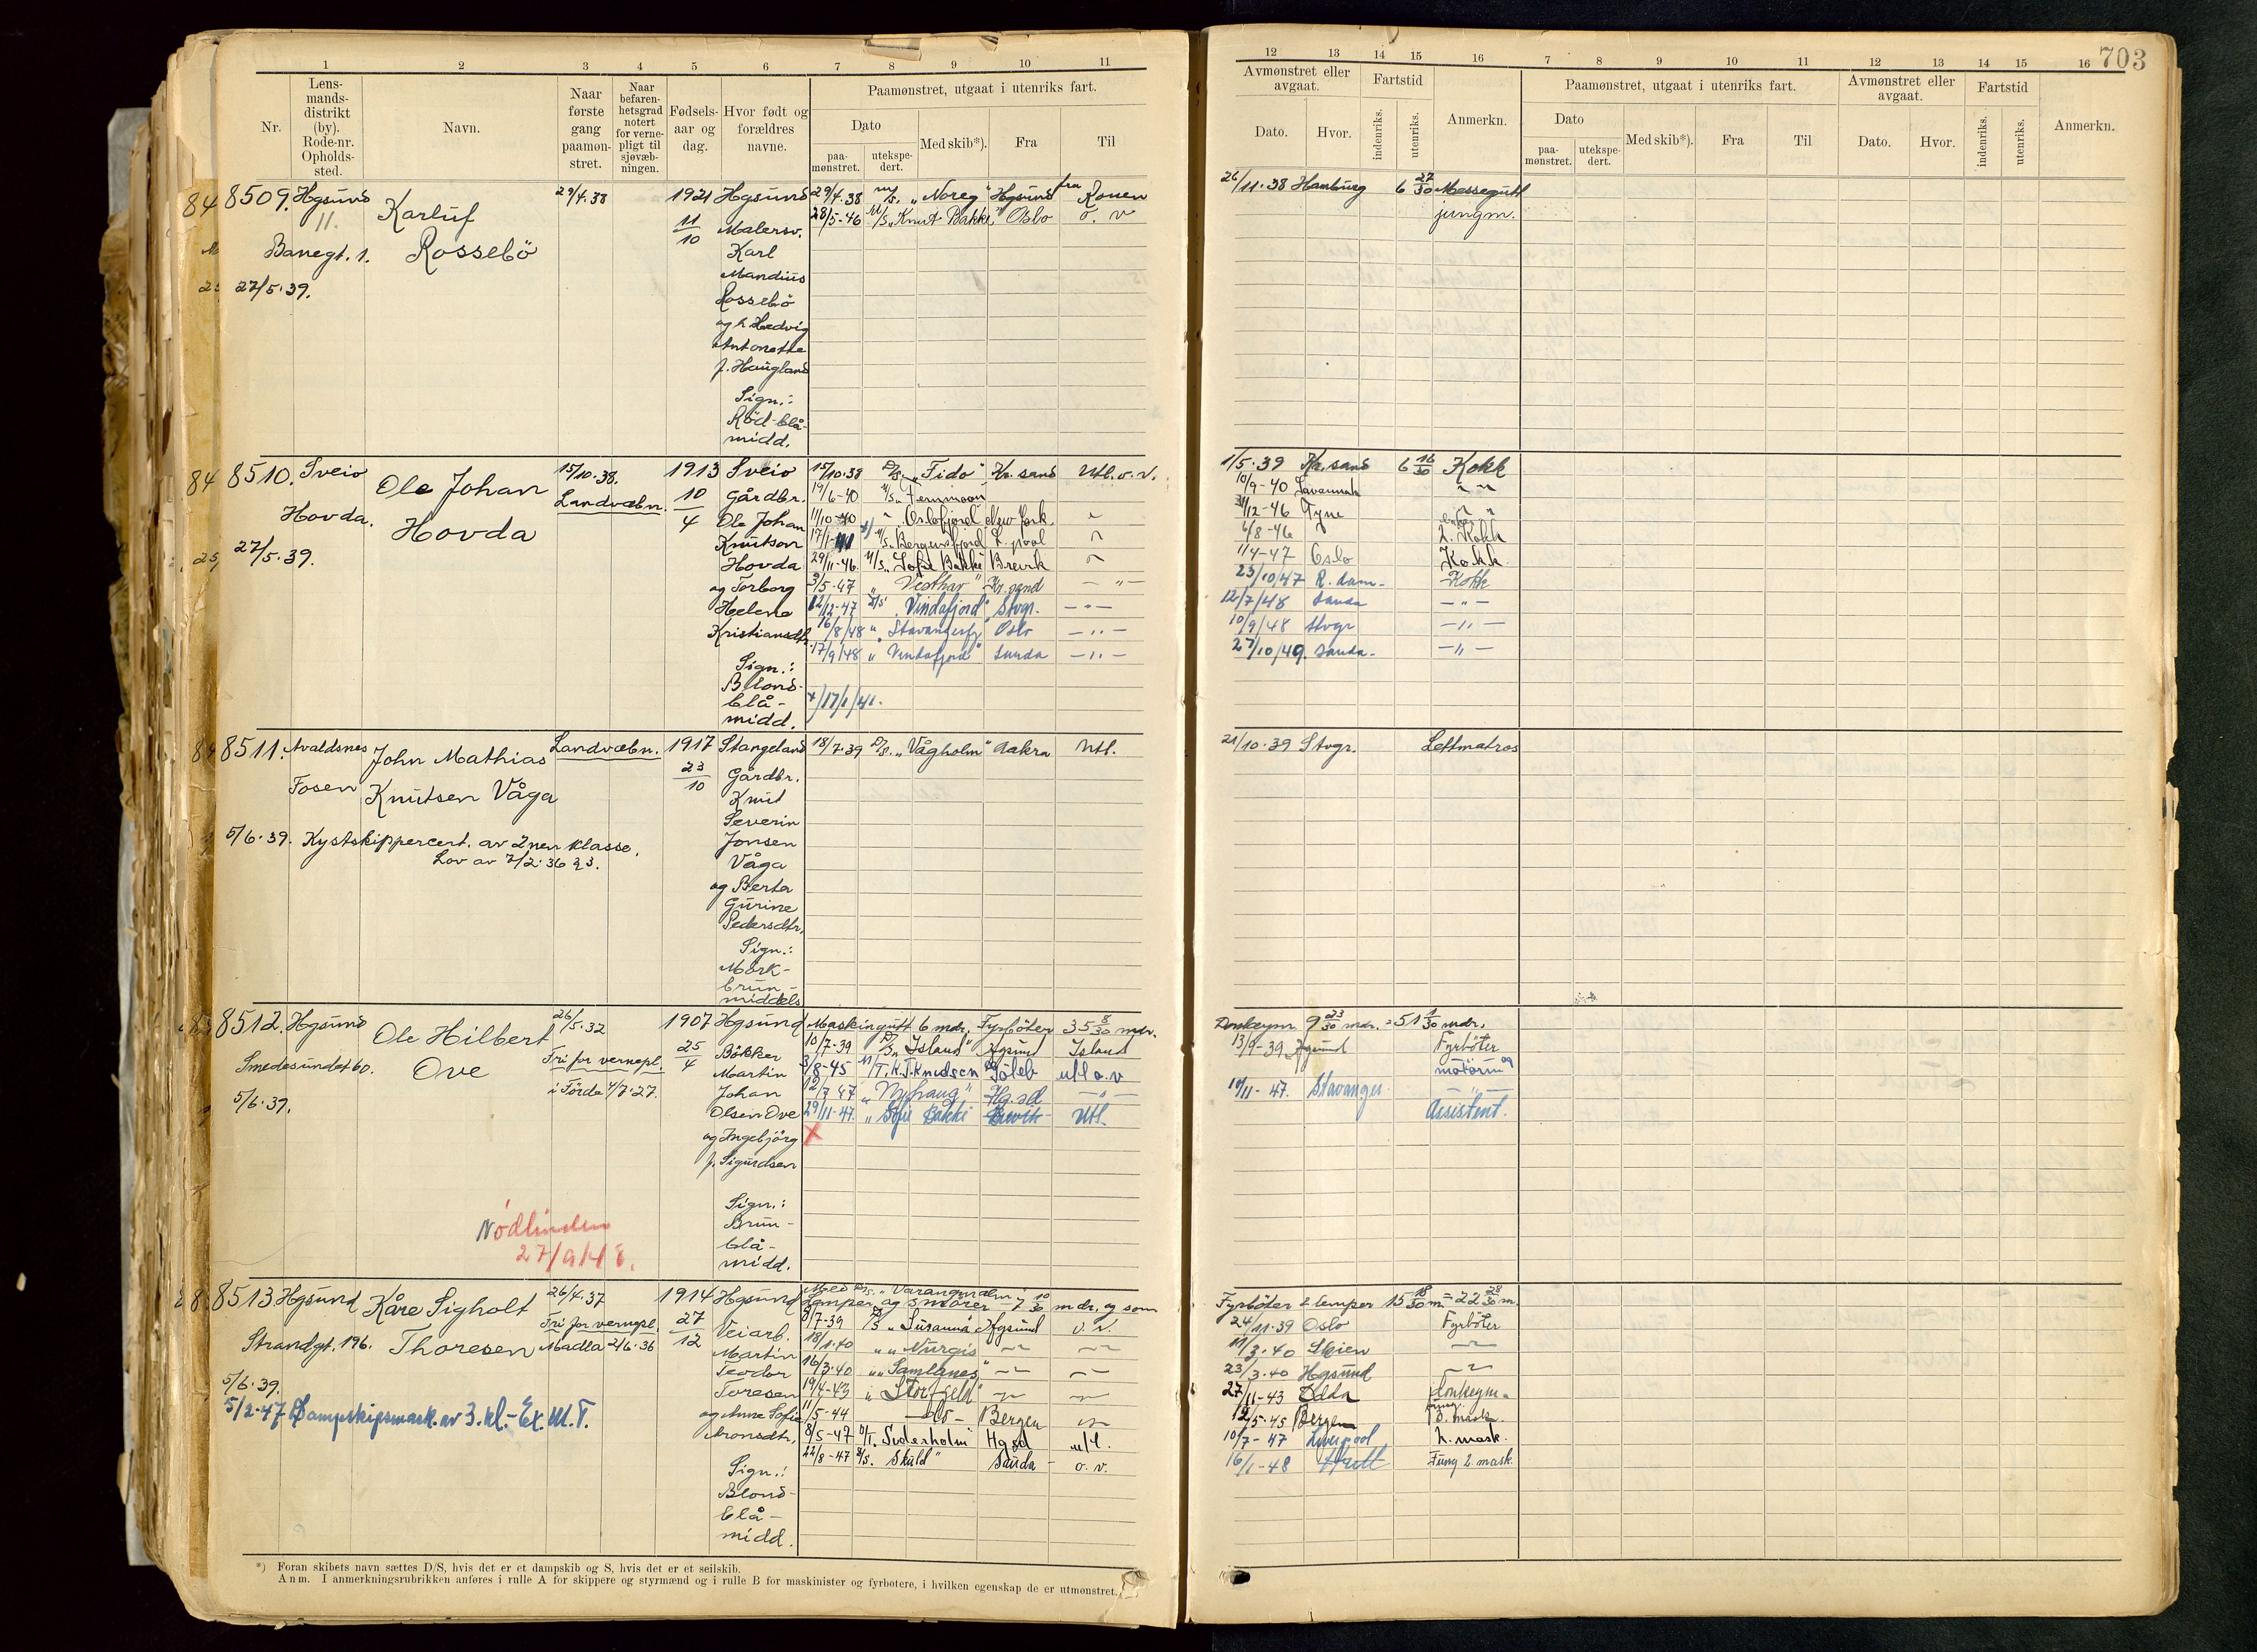 703
1 2 3 4 5 6 7 8 9 10 11
12 13 14 15 16 7 8 9 10 11 12 13 14 15 16
Nr.
Lens-
mands-
distrikt
(by).
Rode-nr.
Opholds-
sted.
Navn.
Naar
første
gang
paamøn-
stret.
Naar
befaren-
hetsgrad
notert
for verne-
pligt til
sjøvæb-
ningen.
Fødsels-
aar og
dag.
Hvor født og
forældres
navne.
Paamønstret, utgaat i utenriks fart.
Dato
paa-
mønstret.
utekspe-
dert.
Med skib*).
Fra
Til
Avmønstret eller
avgaat.
Dato.
Hvor.
Fartstid
indenriks.
utenriks.
Anmerkn.
Paamønstret, utgaat i utenriks fart.
Dato
paa-
mønstret.
utekspe-
dert.
Med skib*).
Fra
Til
Avmønstret eller
avgaat.
Dato.
Hvor.
Fartstid
indenriks.
utenriks.
Anmerkn.
84 8509. Hgsund 29/4.38 1921 Hgsund 29/4.38 M/S. „Noreg" Hgsund fra Rouen 26/11.38 Hamburg 6 27/30 Messegutt
11. Karluf 11/10 Malersv. 28/5-46 M/S „Knut Bakke" Oslo o. v jungm.
Banegt. 1. Rossebö Karl
Mandius
27/5.39. Rossebö
og h. Hedvig
Antonette
f. Haugland
Sign.:
Rød-blå-
midd.
84 8510. Sveio Ole Johan 15/10.38. 1913 Sveio 15/10.38 D/S. „Fido" Kr.sand Utl. o. v. 1/5.39 Kr.sand 6 16/30 Kokk
Landvæbn. 10/4 Gårdbr. 19/6-40 M/S „Fernmoor 10/9-40 Savannah " "
Hovda. Hovda Ole Johan 11/10-40 " „Oslofjord" New York. 31/12-46 Tyne " "
27/5.39. Knutson 17/1-41 M/S „Bergensfjord L.pool 6/8-46 2. Kokk
Hovda 29/11-46. M/S „Sofie Bakke" Brevik 11/4-47 Oslo Kokk.
og Torborg 3/5-47 „ Vesthav" Kr.sand — " — 23/10/47 R.dam- Kokk
Helena 12/12-47 „Vindafjord" Stvgr. — " — 12/7/48 Sauda — " —
Kristiansdtr. 16/8/48 „ „Stavangerfj" Oslo — " — 10/9/48 Stvgr — " —
17/9/48 „ Vindafjord" Sauda — " — 27/10/49. Sauda- — " —
Sign.:
Blond-
blå-
midd. +/17/1/41.
84 8511. Avaldsnes John Mathias Landvæbn. 1917 Stangeland 18/7.39 D/S. „Vågholm" Aakra Utl. 21/10.39 Stvgr. Lettmatros
Fosen Knutsen Våga 23/10 Gårdbr.
Knut
Severin
5/6.39. Kystskippercert. av 2nen klasse. Jonsen
Lov av 7/2.36 § 3. Våga
og Berta
Gurine
Pedersdtr.
Sign.:
Mörk-
brun-
middels
8512. Hgsund Ole Hilbert 26/5.32 1907 Hgsund Maskingutt 6 mdr, Fyrböter 35 8/30 mdr. Donkeym. 9 23/30 mdr. = 51 1/30 mdr.
Smedesundet 60. Ove Fri for vernepl. 25/4 Bökker 10/7-39 D/S „Island" Hgsund Island 13/9-39 Hgsund Fyrböter
i Förde 4/7.27. Martin 3/8-45 M/T. K.J. Knudsen Göteb utl o. v motorm. og
5/6.39. Johan 12/7-47 „Nyhaug" Hg.sd — " — 14/11-47. Stavanger — " —
Olsen Ove 29/11-47. „ Sofie Bakke Brevik Utl. Assistent.
og Ingebjörg X
f. Sigurdsen
Sign.:
Brun-
blå-
midd.
Nødlinden
27/9/48.
8513. Hgsund Kåre Sigholt 26/4.37 1914 Hgsund Med D/S. „Varangmalm"
Lemper og smører - 7 10/30 mdr. og som Fyrböter & lemper 15 18/30 m = 22 28/30 m.
Strandgt. 196. Thoresen Fri for vernepl. 27/12 Veiarb. 8/7-39 D/S „Susanna" Hgsund o. v. 24/11.39 Oslo Fyrböter
Madla 2/6.36 Martin 18/1.40 „ „ Nurgis 11/3.40 Skien
5/6.39. Teodor 16/3.40 „ „ Samlanes" 23/3.40 Hgsund
5/2-47 Dampskipsmask. av 3. kl.- Ex. M. T. Toresen 19/4-43 „ „Storfjeld" 27/11-43 Odda Donkeym.
og Anne Sofie 11/5-44 — do — Bergen 12/5-45 Bergen fung. 3. mask.
Aronsdtr. 8/5-47 D/T. Suderholm" Hgsd utl. 10/7-47 Liverpool 2. mask.
22/8-47 D/S. Skuld" Sauda - o. v. 16/1-48 Fung 2. mask.
Sign.:
Blond-
blå-
midd.
*) Foran skibets navn sættes D/S, hvis det er et dampskib og S, hvis det er et seilskib.
Anm. I anmerkningsrubrikken anføres i rulle A for skippere og styrmænd og i rulle B for maskinister og fyrbøtere, i hvilken egenskap de er utmønstret.